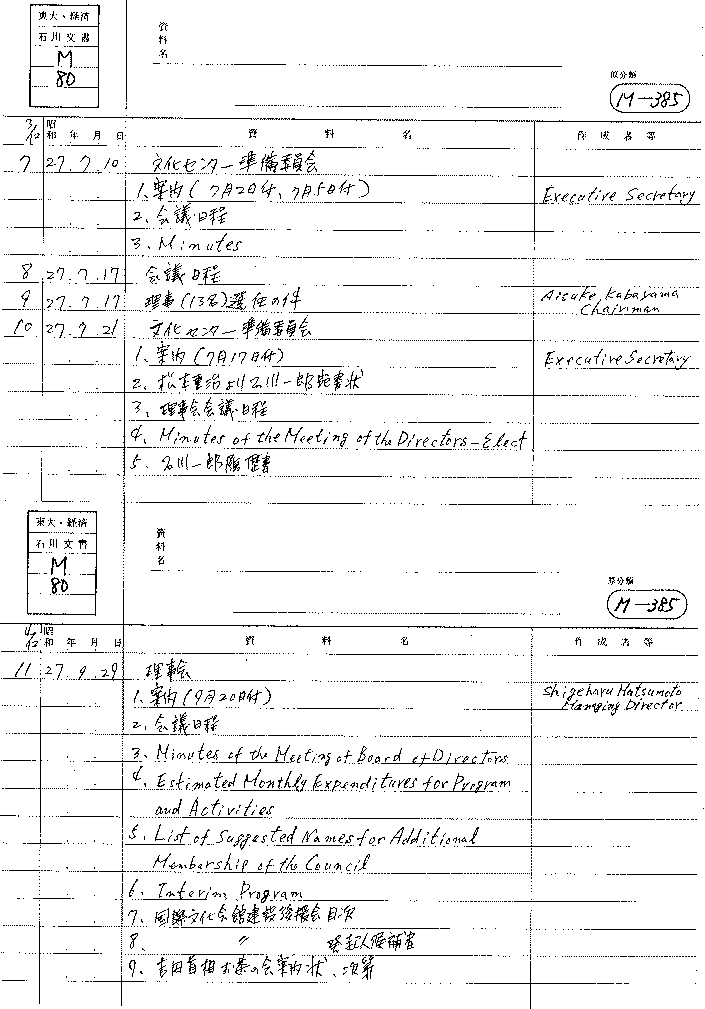 東大・経済
石川文書
M
80
資料名
原分類
M-385
3/12 昭和 年 月 日 資料名 作成者等
7 27.7.10 文化センター準備委員会
1. 案内(7月2日付、7月5日付) Executive Secretary
2. 会議日程
3. Minutes
8 27.7.17 会議日程
9 27.7.17 理事(13名)選任の件 Aisuke Kabayama Chairman
10 27.7.21 文化センター準備委員会
1. 案内(7月17日付) Executive Secretary
2. 松本重治より石川一郎宛書状
3. 理事会会議日程
4. Minutes of the Meeting of the Directors-Elect
5. 石川一郎履歴書
東大・経済
石川文書
M
80
資料名
原分類
M-385
4/12 昭和 年 月 日 資料名 作成者等
11 27.9.29 理事会
1. 案内(9月20日付) Shigeharu Matsumoto Managing Director
2. 会議日程
3. Minutes of the Meeting of Board of Directors
4. Estimated Monthly Expenditures for Program
and Activities
5. List of Suggested Names for Additional
Membership of the Council
6. Interim Program
7. 国際文化会館建設後援会目次
8. 〃 発起人候補者
9. 吉田首相お茶の会案内状、次第